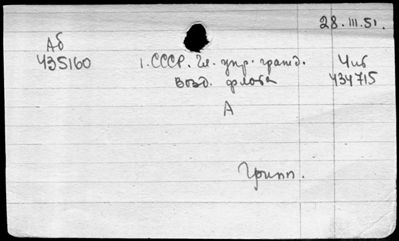 28.III.51.
Аб
435160
1. СССР. Гл. упр. гражд.
Возд. флота
Чиб
434715
А
Грипп.